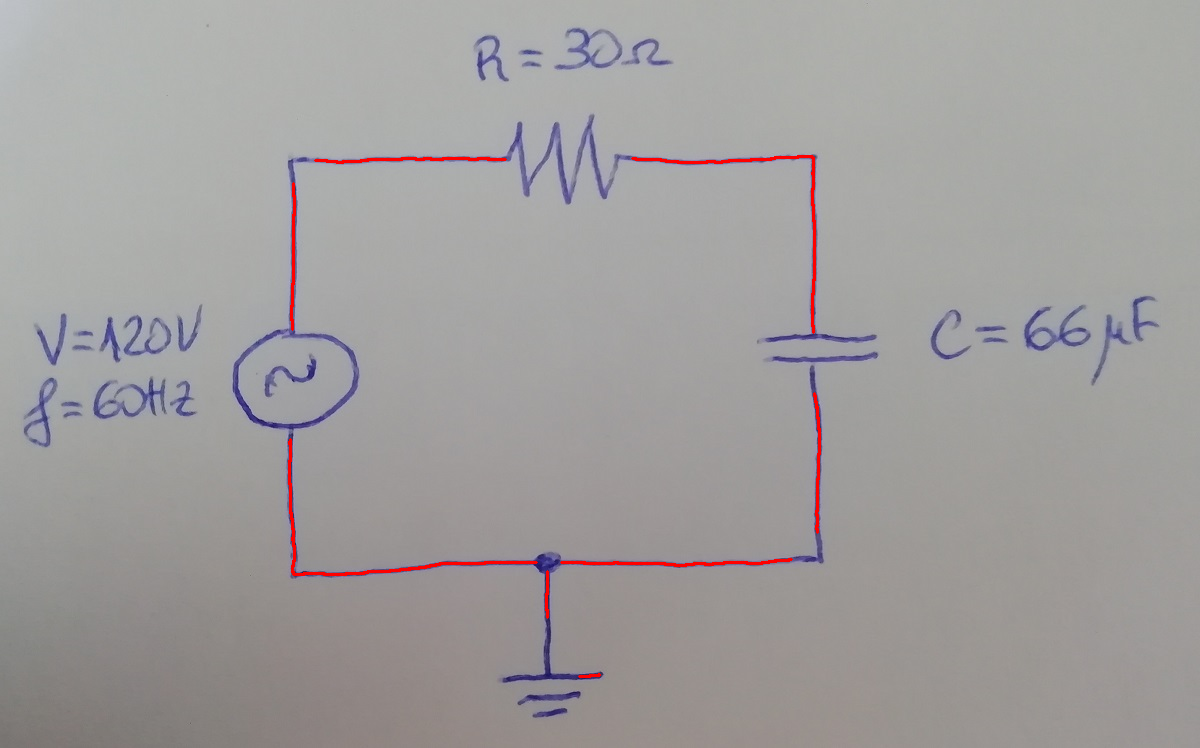 R = 30Ω
V=120V
f=60Hz
C = 66μF